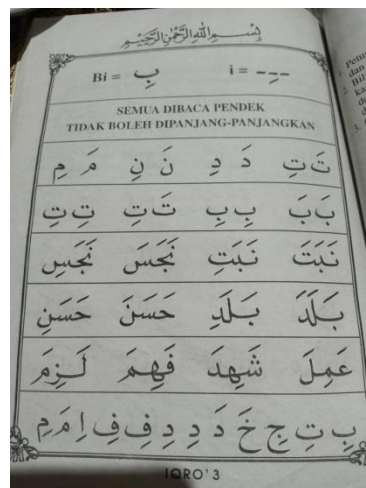 بِسْمِ اللهِ الرَّحْمٰنِ الرَّحِيْمِ
Bi = بِ i = ---ِ
SEMUA DIBACA PENDEK
TIDAK BOLEH DIPANJANG-PANJANGKAN
تَ تِ دَ دِ نَ نِ مَ مِ
بَ بَ بِ بِ تَ تِ تِ تِ
نَبَتَ نَبَتِ نَجَسَ نَجَسِ
بَلَدَ بَلَدِ حَسَنَ حَسَنِ
عَمِلَ شَهِدَ فَهِمَ لَزِمَ
بِ تِ جِ خَ دَ دِ دِ فِ فِ اِ مَ مِ
IQRO' 3